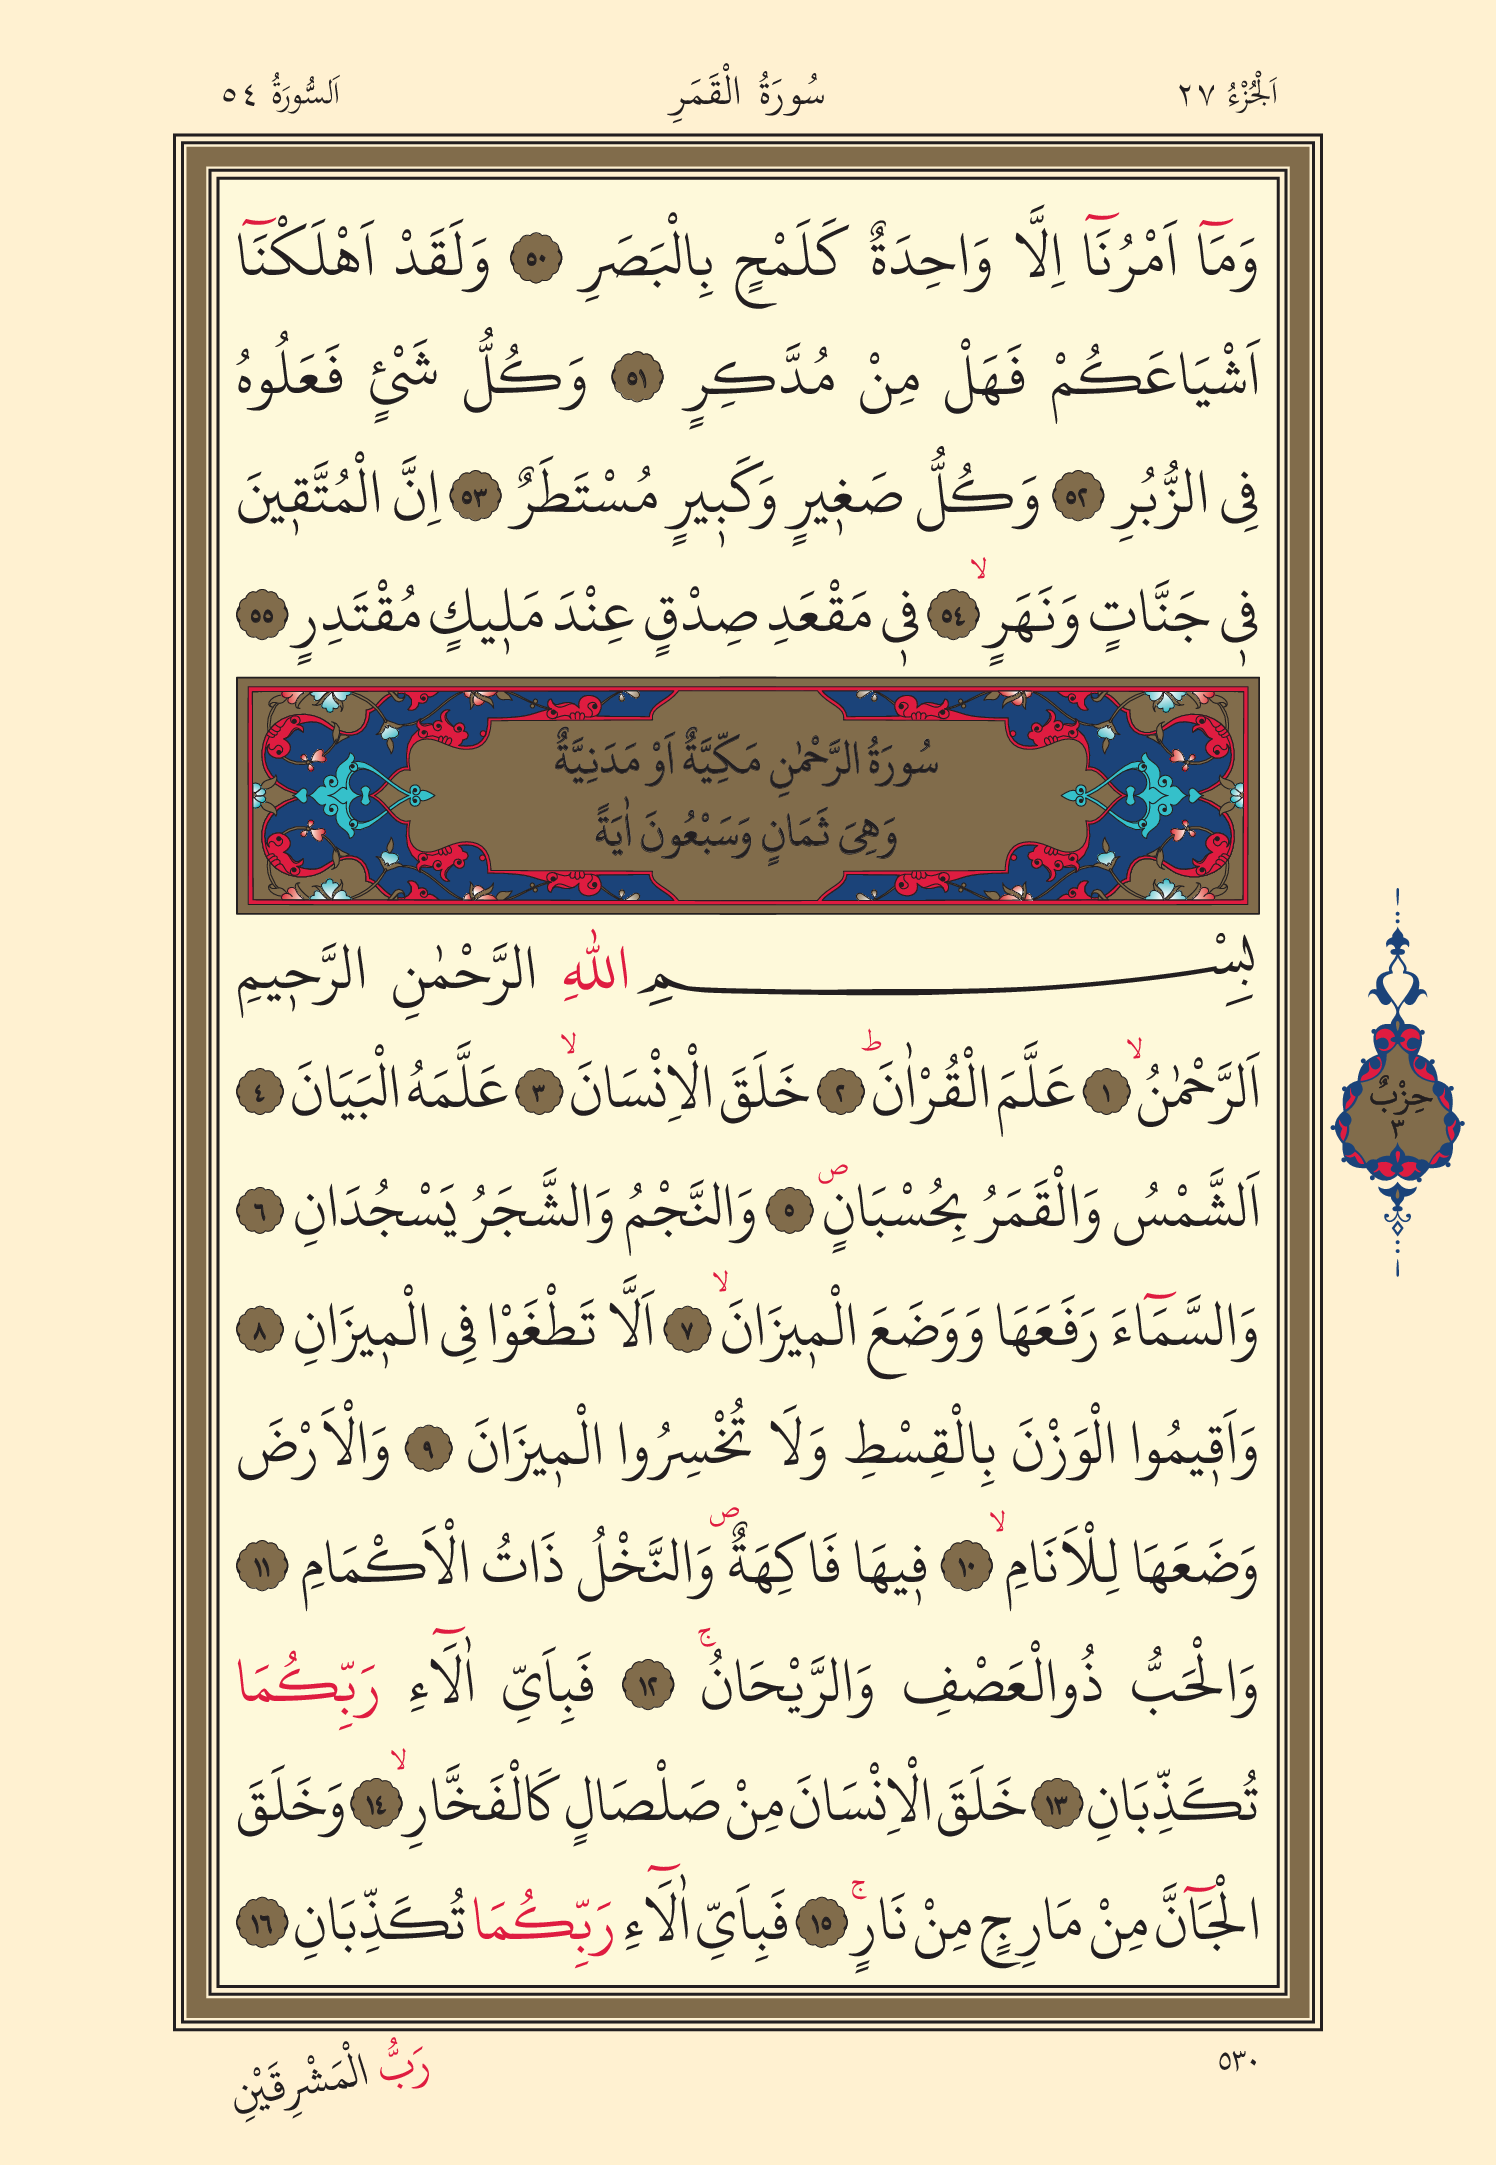 اَلْجُزْءُ ٢٧
سُورَةُ الْقَمَرِ
اَلسُّورَةُ ٥٤
وَمَٓا اَمْرُنَٓا اِلَّا وَاحِدَةٌ كَلَمْحٍ بِالْبَصَرِ ٥٠ وَلَقَدْ اَهْلَكْنَٓا
اَشْيَاعَكُمْ فَهَلْ مِنْ مُدَّكِرٍ ٥١ وَكُلُّ شَيْءٍ فَعَلُوهُ
فِى الزُّبُرِ ٥٢ وَكُلُّ صَغٖيرٍ وَكَبٖيرٍ مُسْتَطَرٌ ٥٣ اِنَّ الْمُتَّقٖينَ
فٖى جَنَّاتٍ وَنَهَرٍ ۙ ٥٤ فٖى مَقْعَدِ صِدْقٍ عِنْدَ مَلٖيكٍ مُقْتَدِرٍ ٥٥
سُورَةُ الرَّحْمٰنِ مَكِّيَّةٌ اَوْ مَدَنِيَّةٌ
وَهِىَ ثَمَانٍ وَسَبْعُونَ اٰيَةً
بِسْمِ اللّٰهِ الرَّحْمٰنِ الرَّحٖيمِ
اَلرَّحْمٰنُ ۙ ١ عَلَّمَ الْقُرْاٰنَ ۜ ٢ خَلَقَ الْاِنْسَانَ ۙ ٣ عَلَّمَهُ الْبَيَانَ ٤
اَلشَّمْسُ وَالْقَمَرُ بِحُسْبَانٍ ۖ ٥ وَالنَّجْمُ وَالشَّجَرُ يَسْجُدَانِ ٦
وَالسَّمَٓاءَ رَفَعَهَا وَوَضَعَ الْمٖيزَانَ ۙ ٧ اَلَّا تَطْغَوْا فِى الْمٖيزَانِ ٨
وَاَقٖيمُوا الْوَزْنَ بِالْقِسْطِ وَلَا تُخْسِرُوا الْمٖيزَانَ ٩ وَالْاَرْضَ
وَضَعَهَا لِلْاَنَامِ ۙ ١٠ فٖيهَا فَاكِهَةٌ ۖ وَالنَّخْلُ ذَاتُ الْاَكْمَامِ ١١
وَالْحَبُّ ذُوالْعَصْفِ وَالرَّيْحَانُ ۚ ١٢ فَبِاَيِّ اٰلَٓاءِ رَبِّكُمَا
تُكَذِّبَانِ ١٣ خَلَقَ الْاِنْسَانَ مِنْ صَلْصَالٍ كَالْفَخَّارِ ۙ ١٤ وَخَلَقَ
الْجَٓانَّ مِنْ مَارِجٍ مِنْ نَارٍ ۚ ١٥ فَبِاَيِّ اٰلَٓاءِ رَبِّكُمَا تُكَذِّبَانِ ١٦
حِزْبٌ
٣
٥٣٠
رَبُّ الْمَشْرِقَيْنِ